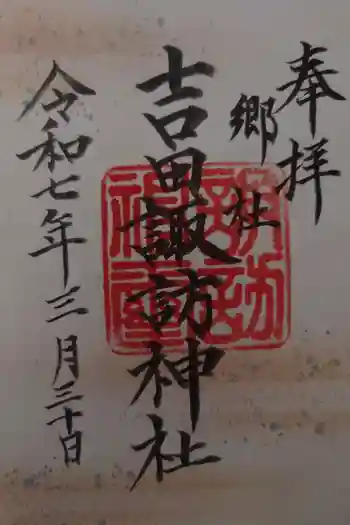 奉拝
郷社
吉田諏訪神社
令和七年三月三十日